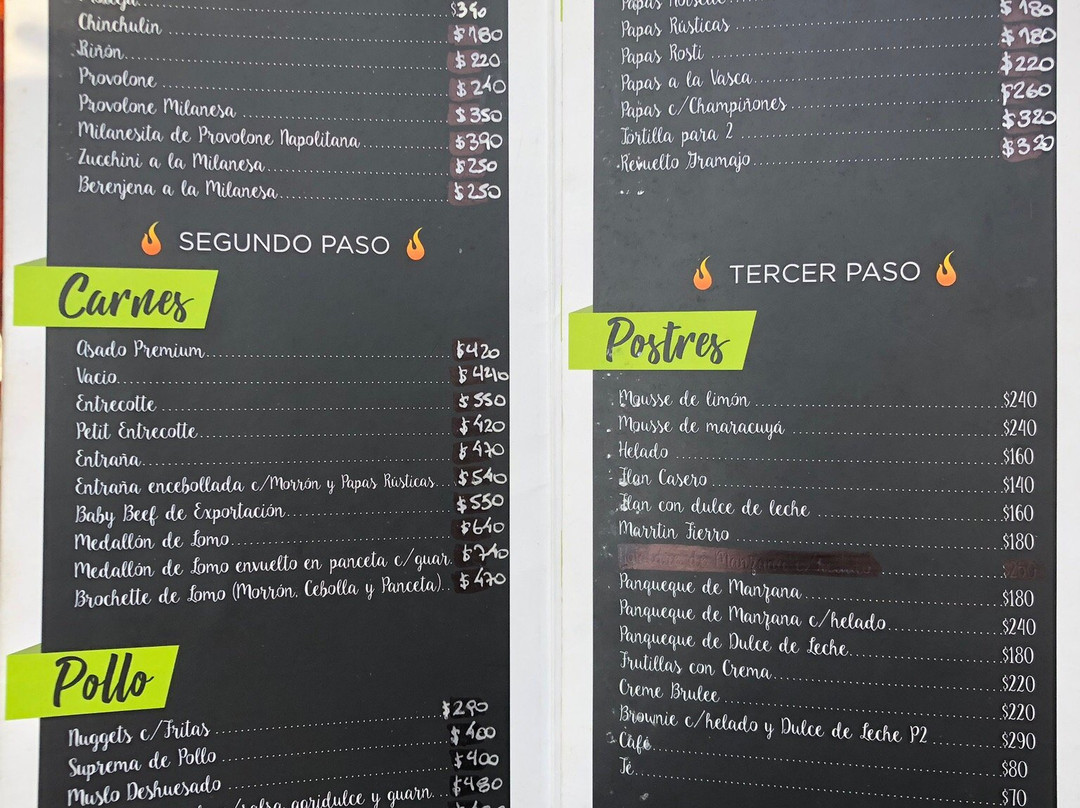 $390
Chinchulin $180
Riñón $220
Provolone $240
Provolone Milanesa $350
Milanesita de Provolone Napolitana $390
Zucchini a la Milanesa $250
Berenjena a la Milanesa $250
SEGUNDO PASO
Carnes
Asado Premium $420
Vacio
Entrecotte $550
Petit Entrecotte $420
Entraña $470
Entraña encebollada c/Morrón y Papas Rústicas $540
Baby Beef de Exportación $550
Medallón de Lomo $640
Medallón de Lomo envuelto en panceta c/guar. $740
Brochette de Lomo (Morrón, Cebolla y Panceta) $470
Pollo
Nuggets c/Fritas $290
Suprema de Pollo $400
Muslo Deshuesado $400
/salsa agridulce y guarn. $480
Papas Noisette
Papas Rústicas $180
Papas Rosti $180
Papas a la Vasca $220
Papas c/Champiñones $260
Tortilla para 2 $320
Revuelto Gramajo $320
TERCER PASO
Postres
Mousse de limón $240
Mousse de maracuyá $240
Helado $160
Flan Casero $140
Flan con dulce de leche $160
Marrtin Fierro $180
Panqueque de Manzana $180
Panqueque de Manzana c/helado $240
Panqueque de Dulce de Leche $180
Frutillas con Crema $220
Creme Brulee $220
Brownie c/helado y Dulce de Leche P2 $290
Café $80
Té $70